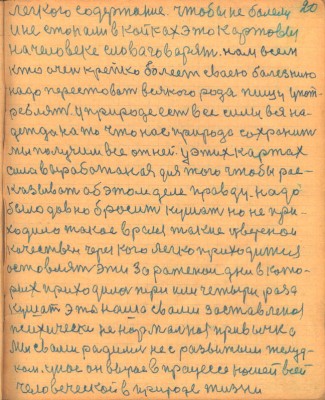 20
легкого содержание. чтобы не болели
и не стонали в койках это картовы
на человеке слова говарят. нам всем
кто очен крепко болеет своею болезнию
надо перестоват всякого рода пищу упот-
реблят. у природе ест все силы вся на-
дежда на то что нас природа сохранит
мы получим все от ней. у этих картах
сила выработаная для того чтобы рас-
казыват об этом деле правду. надо
было давно бросит кушат но не при-
ходило такое время такие тверёной
качествен через кого легко приходится
оставлят эти за ратепои дни в кото-
рых приходилос три или четыри раза
кушат это наша с вами заставленая
психически не нормалная привычка
мы с вами родилис не с развытым желуд-
ком. у нас он вырос в процессе нашей всей
человеческой в природе жизни